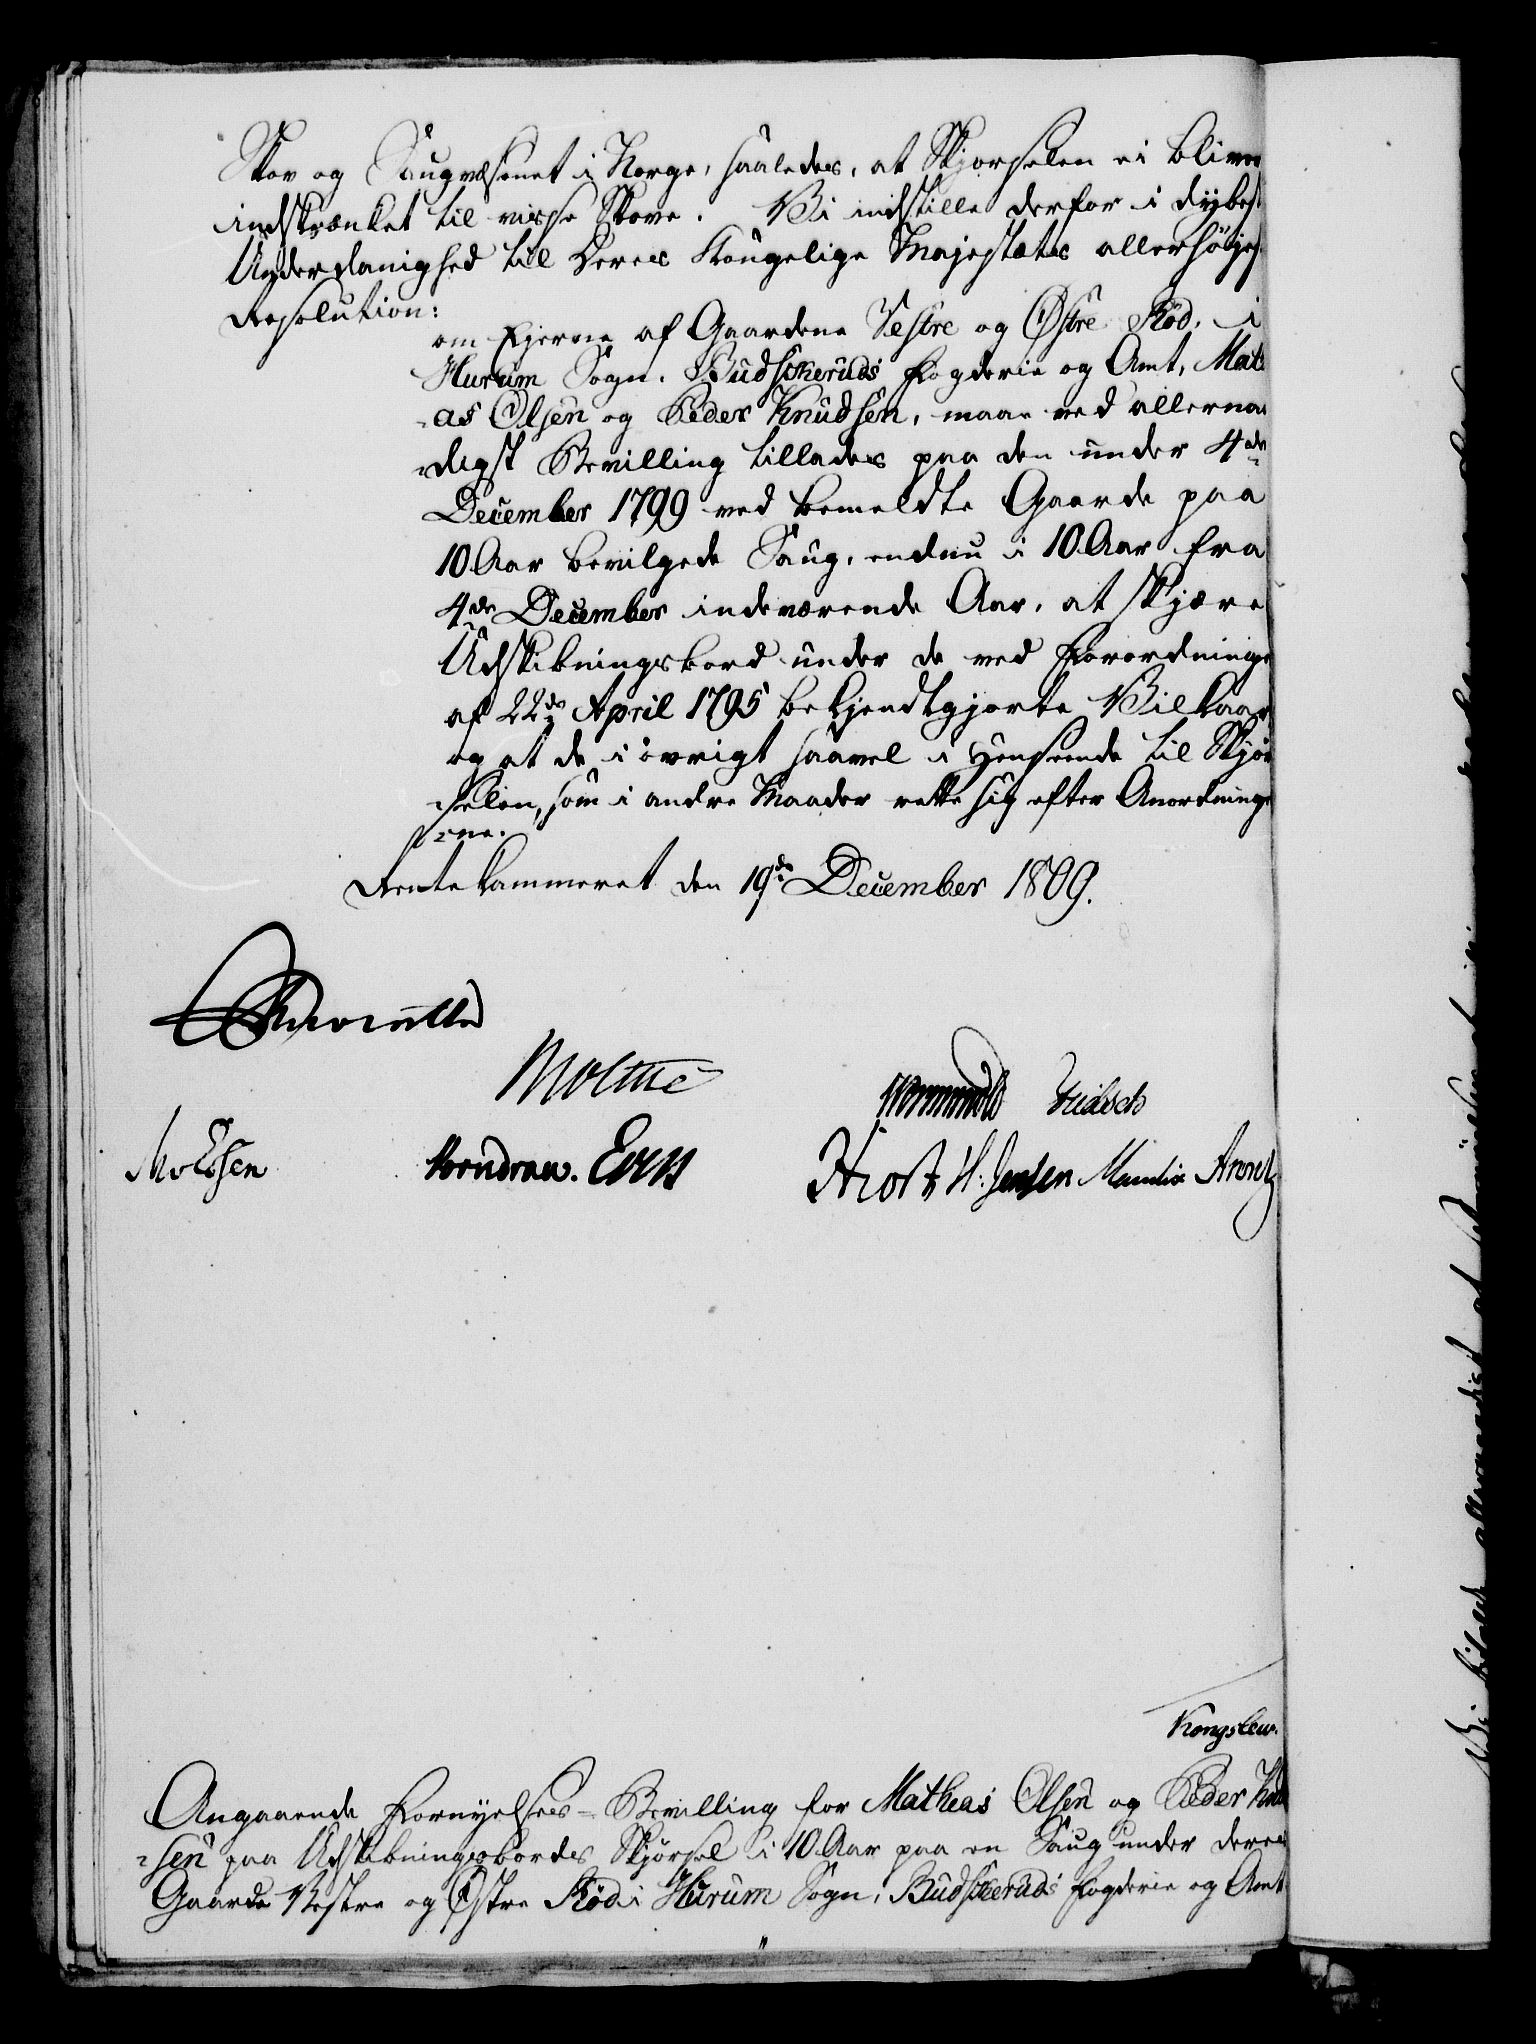 Skov og Saugvæsenet i Norge, saaledes, at Skjørselen ei bliver
indskrænket til visse Skove. Vi indstille derfor i dybest
Underdanighed til Deres Kongelige Majestæts allerhøijest
Resolution:
om Ejerne af Gaardene Vestre og Østre Rød, i
Hurum Sogn, Budskeruds Fogderie og Amt, Mathi
-as Olsen og Peder Knudsen, maae ved allernaa
-digst Bevilling tillades paa den under 4de
December 1799 ved bemeldte Gaarde paa
10 Aar bevilgede Saug, endnu i 10 Aar fra
4de December indeværende Aar, at skjære
Udskibningsbord under de ved Forordninge
af 22de April 1795 bekjendtgjorte Vilkaar
og at de i øvrigt saavel i Henseende til Skjør
-selen, som i andre Maader rette sig efter Anordninge
-rne.
Rentekammeret den 19de December 1809.
Moltke
Wormskiold
Knudsen Bendz
Hiort H: Jensen Manthei Arntz
Kongslew.
Angaaende Fornyelses-Bevilling for Mathias Olsen og Peder Knud
-sen paa Udskibningsbordes Skjørsel i 10 Aar paa en Saug under deres
Gaarde Vestre og Østre Rød i Hurum Sogn, Budskeruds Fogderie og Amt.